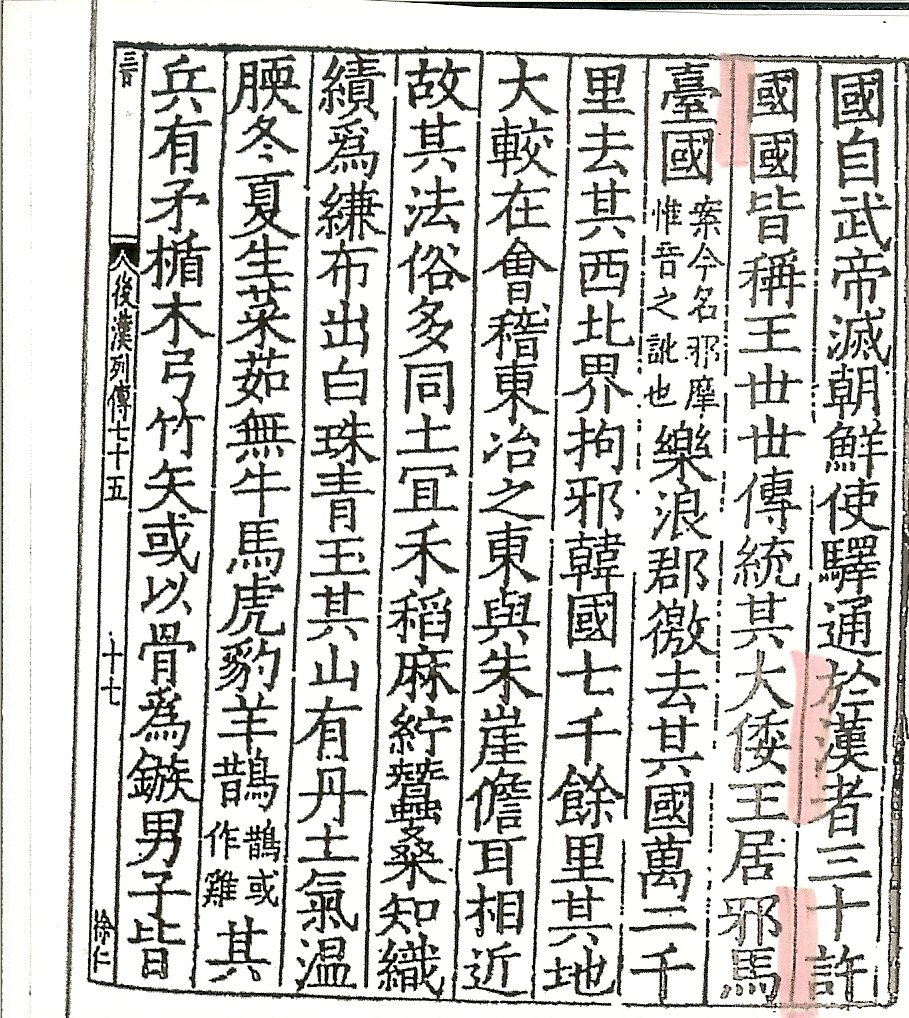 國自武帝滅朝鮮使驛通於漢者三十許
國國皆稱王丗丗傳統其大倭王居邪馬
臺國案今名邪摩惟音之訛也樂浪郡徼去其國萬二千
里去其西北界拘邪韓國七千餘里其地
大較在會稽東冶之東與朱崖儋耳相近
故其法俗多同土冝禾稻麻紵蠶桑知織
績爲縑布出白珠青玉其山有丹土氣温
腝冬夏生菜茹無牛馬虎豹羊鵲鵲或作雞其
兵有矛楯木弓竹矢或以骨爲鏃男子皆
後漢列傳七十五
十七
徐仁